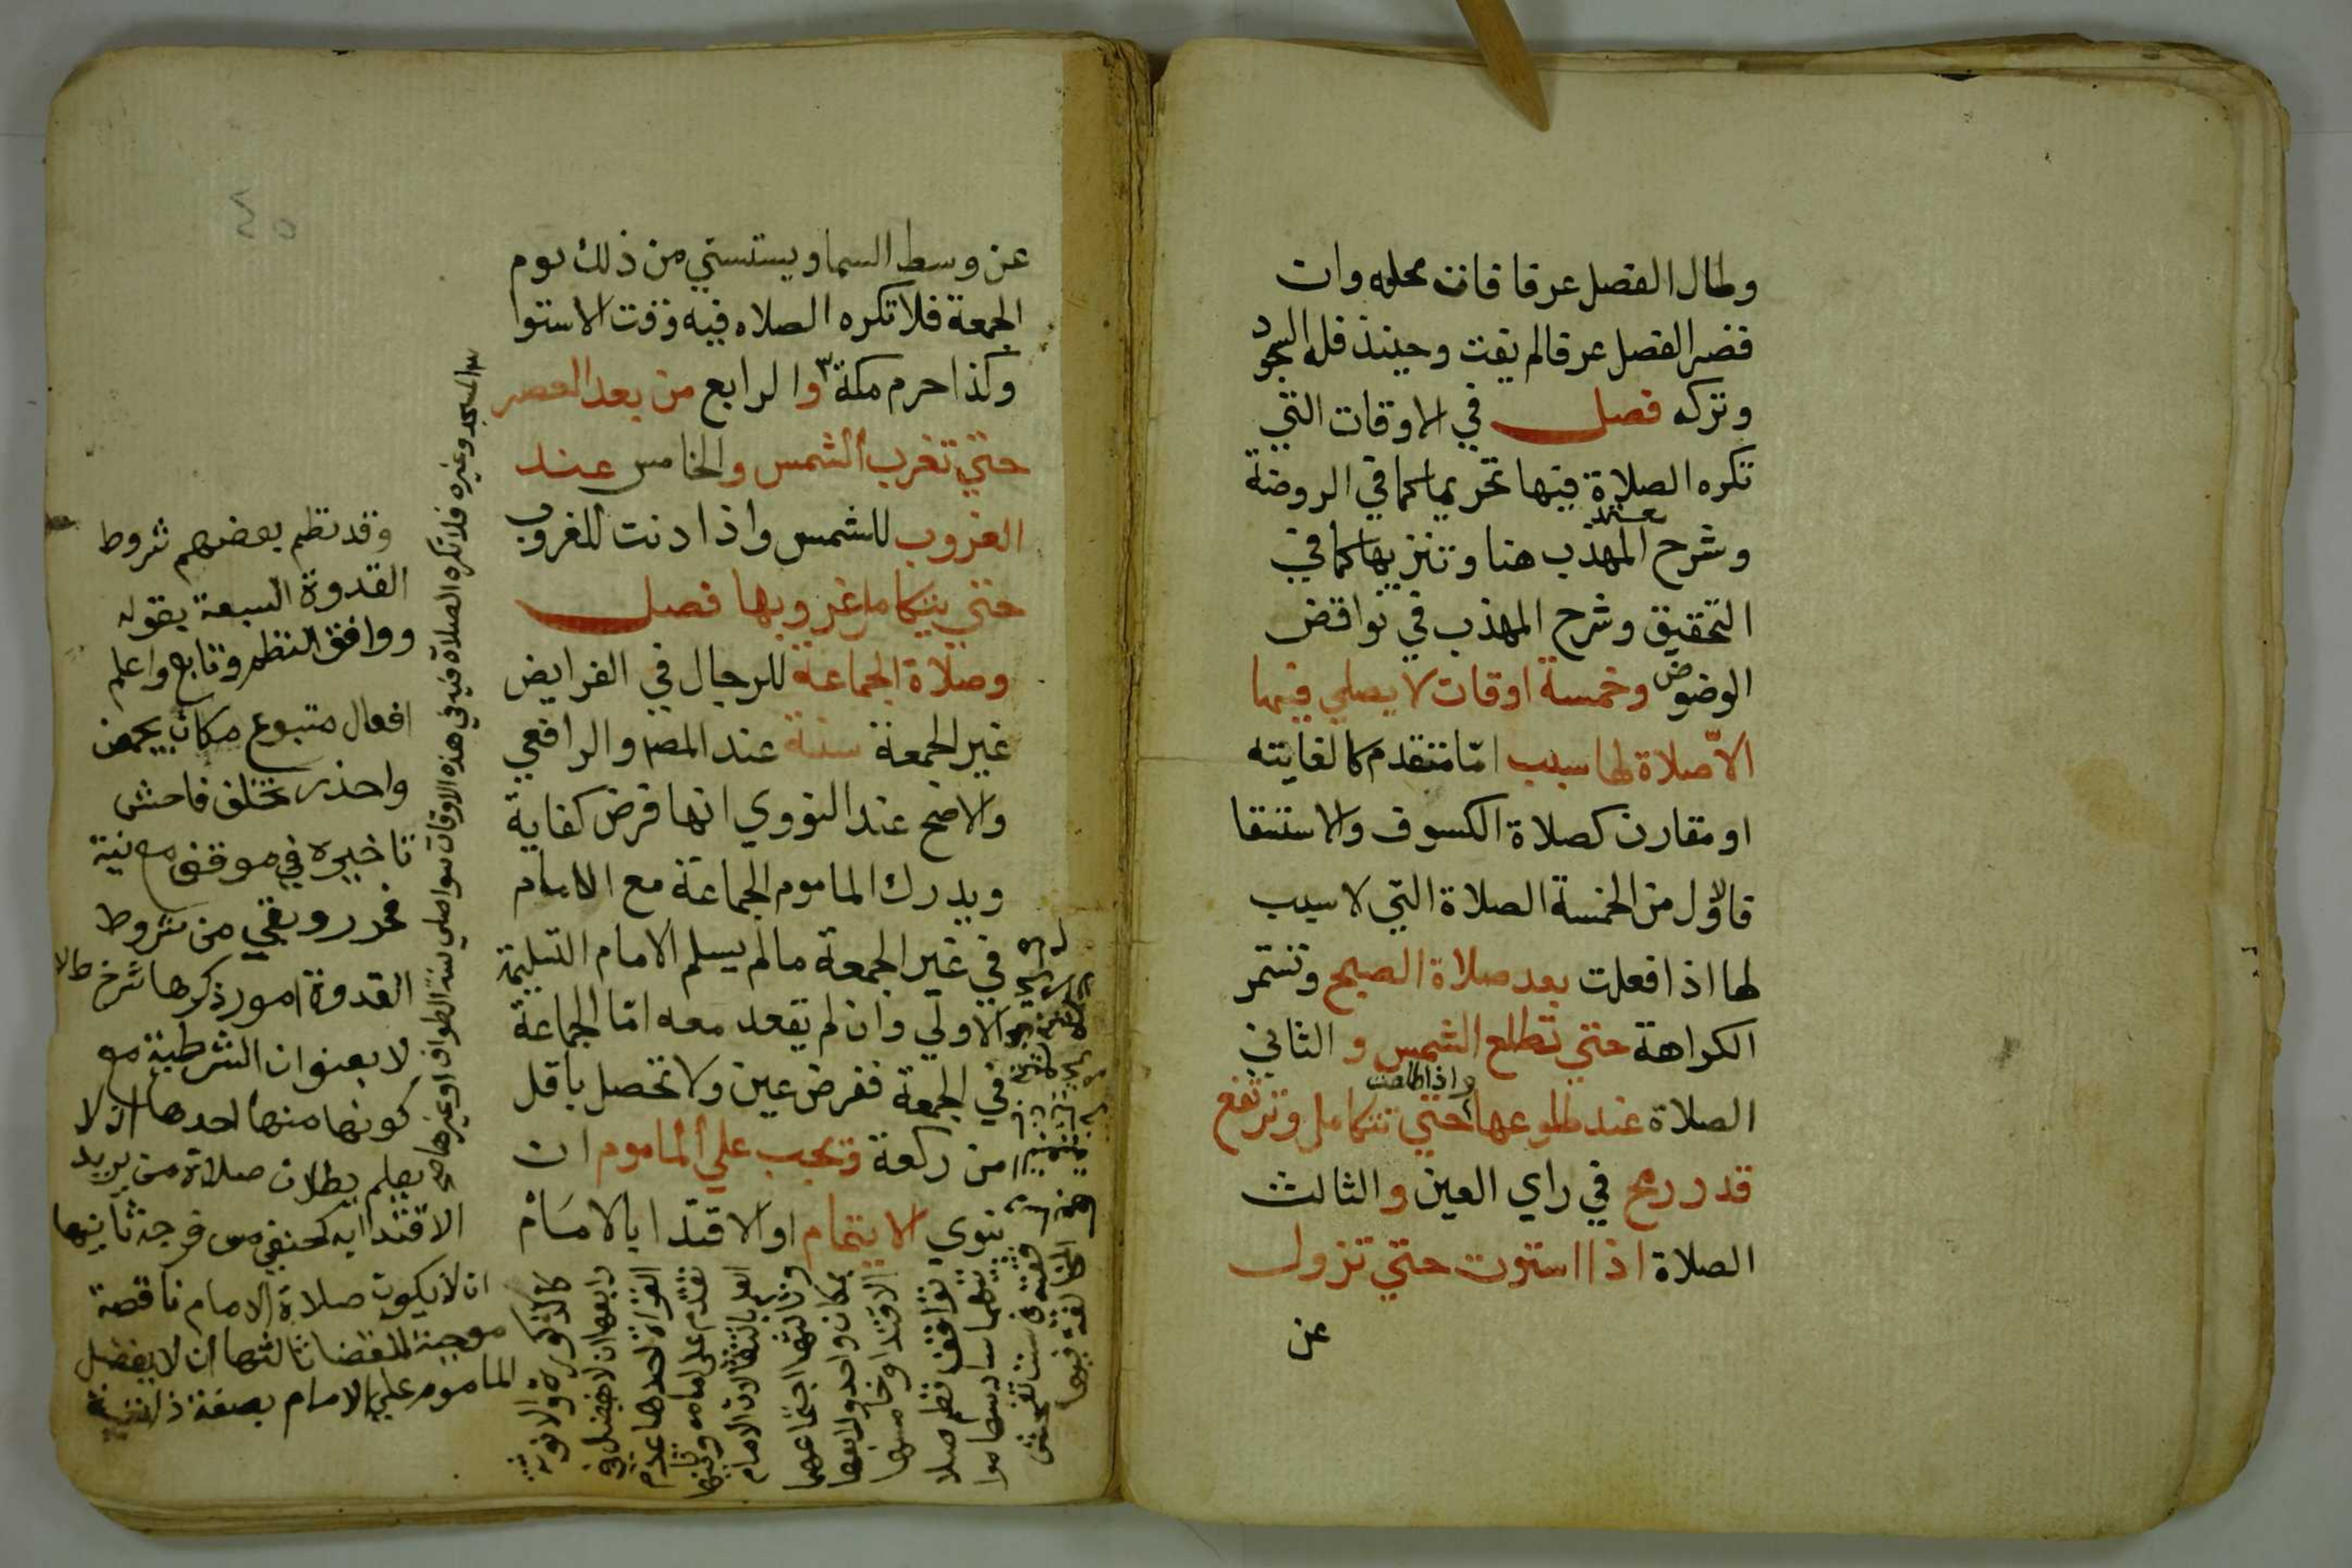 وطال الفصل عرفا فات محله وان
قصر الفصل عرفا لم يفت وحينئذ فله السجود
وتركه فصل في الاوقات التي
تكره الصلاة فيها تحريما كما في الروضة
معتمد
وشرح المهذب هنا وتنزيها كما في
التحقيق وشرح المهذب في نواقض
الوضو وخمسة اوقات لا يصلي فيها
الا صلاة لها سبب اما متقدم كالفايته
او مقارن كصلاة الكسوف والاستسقا
فالاول من الخمسة الصلاة التي لا سبب
لها اذا فعلت بعد صلاة الصبح وتستمر
الكراهة حتي تطلع الشمس و الثاني
واذا طلعت
الصلاة عند طلوعها حتي تتكامل وترتفع
قدر رمح في راي العين و الثالث
الصلاة اذا استوت حتي تزول
عن
٤٥
عن وسط السما ويستسني من ذلك يوم
الجمعة فلا تكره الصلاه فيه وقت الاستوا
وكذا حرم مكة ٣ والرابع من بعد العصر
حتي تغرب الشمس والخامس عند
الغروب للشمس واذا دنت للغروب
حتي يتكامل غروبها فصل
وصلاة الجماعة للرجال في الفرايض
غير الجمعة سنة عند المصـ والرافعي
والاصح عند النووي انها فرض كفاية
ويدرك الماموم الجماعة مع الامام
في غير الجمعة ما لم يسلم الامام التسليمة
الاولي وان لم يقعد معه اما الجماعة
في الجمعة ففرض عين ولا تحصل باقل
من ركعة وتجب علي الماموم ان
ينوي الايتمام او الاقتدا بالامام
المسجد وغيره فلا تكره الصلاة فيه في هذه الاوقات سوا صلي سنة الطواف او غيرها صح
وقد نظم بعضهم شروط
القدوة السبعة بقوله
ووافق النظم وتابع واعلم
افعال متبوع مكان يجمعن
واحذر تخلف فاحش
تاخيره في موقف مع نية
فحرر وبقي من شروط
القدوة امور ذكرها
لا بعنوان الشرطية مع
كونها منها احدها ان لا
يعلم بطلان صلاة من يريد
الاقتدا به كحنفي مس فرجه ثانيها
ان لا يكون صلاة الامام ناقصة
موجبة للقضا ثالثها ان لا يفضل
الماموم علي الامام بصفة ذاتية
كالذكورة والانوثة
رابعها ان لا يفضل في
القراة احدها عدم
تقدم على امامه وثانيها
العلم بانتقالات الامام
وثالثها اجتماعهما
بمكان واحد ورابعها
الاقتدا وخامسها
توافق نظم صلا
تيهما سادسها موا
فقته في سنن تفحش
المخالفة فيها